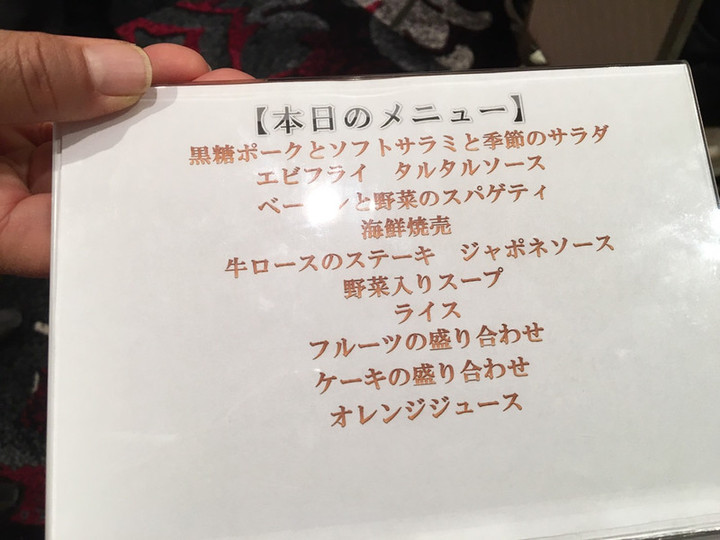 【本日のメニュー】
黒糖ポークとソフトサラミと季節のサラダ
エビフライ　タルタルソース
と野菜のスパゲティ
海鮮焼売
牛ロースのステーキ　ジャポネソース
野菜入りスープ
ライス
フルーツの盛り合わせ
ケーキの盛り合わせ
オレンジジュース